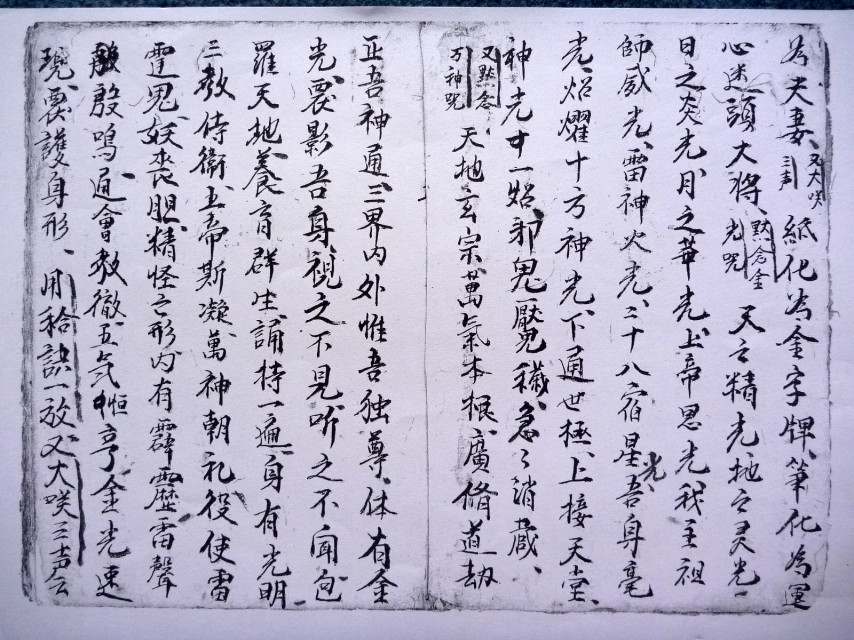 为夫妻、又大咲三声 紙化為金字牌、筆化為運
心迷頭大将、黙念金光咒 天之精光、地之灵光、
日之炎光、月之華光、上帝恩光、我主祖
師威光、雷神火光、二十八宿星光、吾身毫
光、炤耀十方神光、下通世極、上接天堂、
神光才一炤、邪鬼厭穢、急々消蔵、
又黙念万神咒 天地玄宗、萬氣本根、廣脩道劫
正吾神通、三界内外、惟吾独尊、体有金
光、裵影吾身、視之不見、听之不聞、包
羅天地、養育群生、誦持一遍、身有光明、
三教侍衛、五帝斯凝、萬神朝礼、役使雷
霆、鬼妖丧胆、精怪亡形、内有霹靂、雷聲
殷殷鳴、通會教徹、五气恒亨、金光速
現、裵護身形、用袷訣一放、又大咲三声云